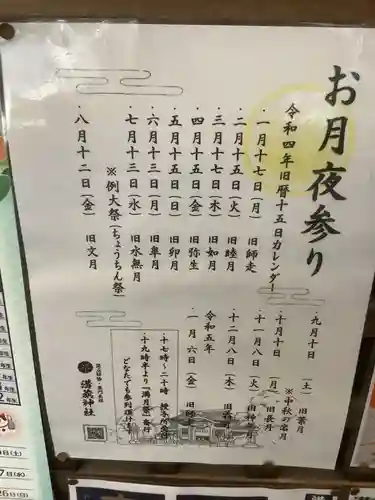 お月夜参り
令和四年旧暦十五日カレンダー
・一月十七日(月) 旧師走
・二月十五日(火) 旧睦月
・三月十七日(木) 旧如月
・四月十五日(金) 旧弥生
・五月十五日(日) 旧卯月
・六月十三日(月) 旧皐月
・七月十三日(水) 旧水無月
※例大祭(ちょうちん祭)
・八月十二日(金) 旧文月
・九月十日 (土) 旧葉月
※中秋の名月
・十月十日 (月) 旧長月
・十一月八日 (火)
・十二月八日 (木)
令和五年
一月六日(金) 旧師走
十七時〜二十時 授与所斎行
十九時半より「満月祭」斎行
どなたでも参列頂けます
溝旗神社